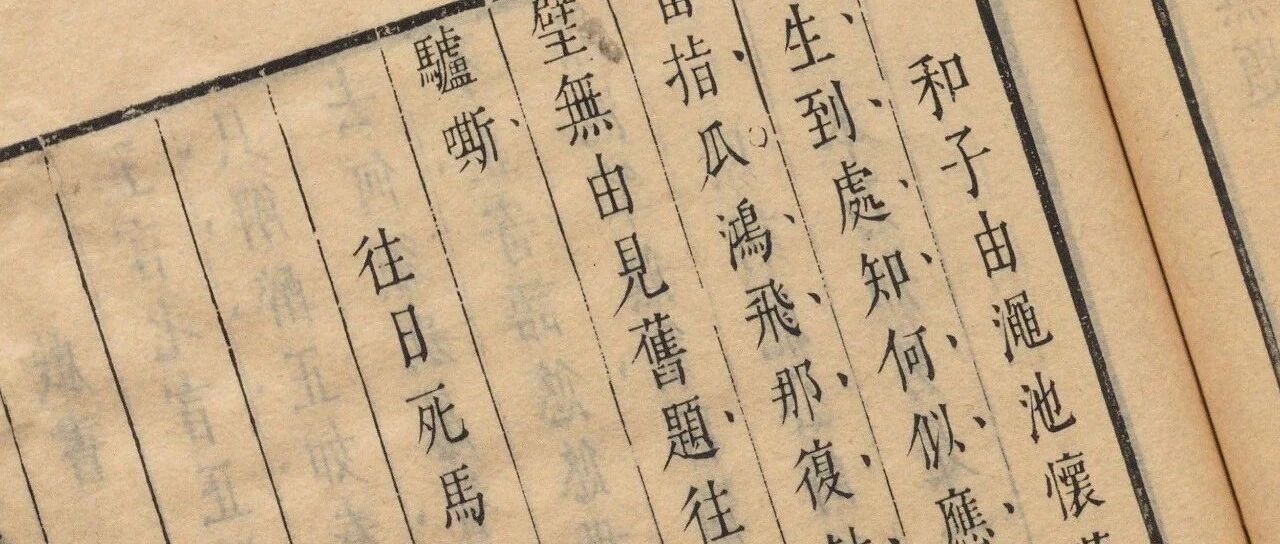 和子由澠池懷
生到處知何似應
指瓜鴻飛那復
壁無由見舊題往
驢嘶
往日死馬